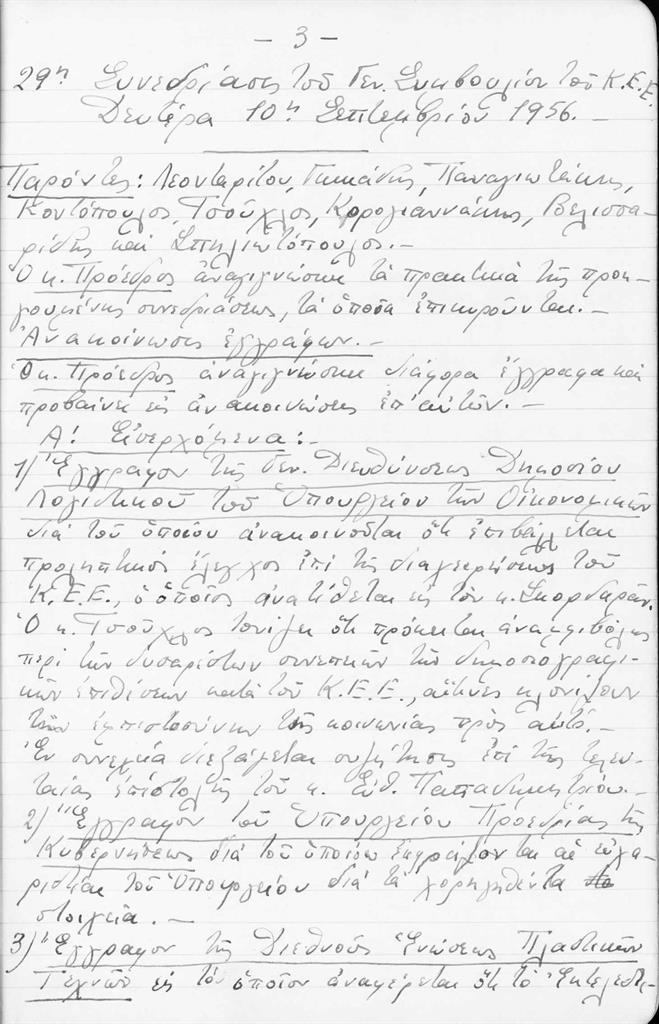 - 3 -
29η Συνεδρίασις τοῦ Γεν. Συμβουλίου τοῦ Κ.Ε.Ε.
Δευτέρα 10η Σεπτεμβρίου 1956. -
Παρόντες: Λεονταρίτου, Γιαμιάδης, Παναγιωτάκης,
Κοντόπουλος, Τσοῦχλος, Κορογιαννάκης, Βελισσα-
ρίδης καί Σπηλιωτόπουλος. -
Ὁ κ. Πρόεδρος ἀναγιγνώσκει τά πρακτικά τῆς προη-
γουμένης συνεδριάσεως, τά ὁποῖα ἐπικυροῦνται. -
Ἀνακοίνωσις ἐγγράφων. -
Ὁ κ. Πρόεδρος ἀναγιγνώσκει διάφορα ἔγγραφα καί
προβαίνει εἰς ἀνακοινώσεις ἐπ' αὐτῶν. -
Α! Εἰσερχόμενα: -
1) Ἔγγραφον τῆς Γεν. Διευθύνσεως Δημοσίου
Λογιστικοῦ τοῦ Ὑπουργείου τῶν Οἰκονομικῶν
διά τοῦ ὁποίου ἀνακοινοῦται ὅτι ἐπιβάλλεται
προληπτικός ἔλεγχος ἐπί τῆς διαχειρίσεως τοῦ
Κ.Ε.Ε., ὁ ὁποῖος ἀνατίθεται εἰς τόν κ. Σκορδαρᾶν.
Ὁ κ. Τσοῦχλος τονίζει ὅτι πρόκειται ἀναμφιβόλως
περί τῶν δυσαρέστων συνεπειῶν τῶν δημοσιογραφι-
κῶν ἐπιθέσεων κατά τοῦ Κ.Ε.Ε., αἵτινες κλονίζουν
τήν ἐμπιστοσύνην τῆς κοινωνίας πρός αὐτό. -
Ἐν συνεχείᾳ διεξάγεται συζήτησις ἐπί τῆς τελευ-
ταίας ἐπιστολῆς τοῦ κ. Εὐθ. Παπαδημητρίου. -
2) Ἔγγραφον τοῦ Ὑπουργείου Προεδρίας τῆς
Κυβερνήσεως διά τοῦ ὁποίου ἐκφράζονται αἱ εὐχα-
ριστίαι τοῦ Ὑπουργείου διά τά χορηγηθέντα
στοιχεῖα. -
3) Ἔγγραφον τῆς Διεθνοῦς Ἑνώσεως Πλαστικῶν
Τεχνῶν εἰς τό ὁποῖον ἀναφέρεται ὅτι τό Ἐκτελεστι-